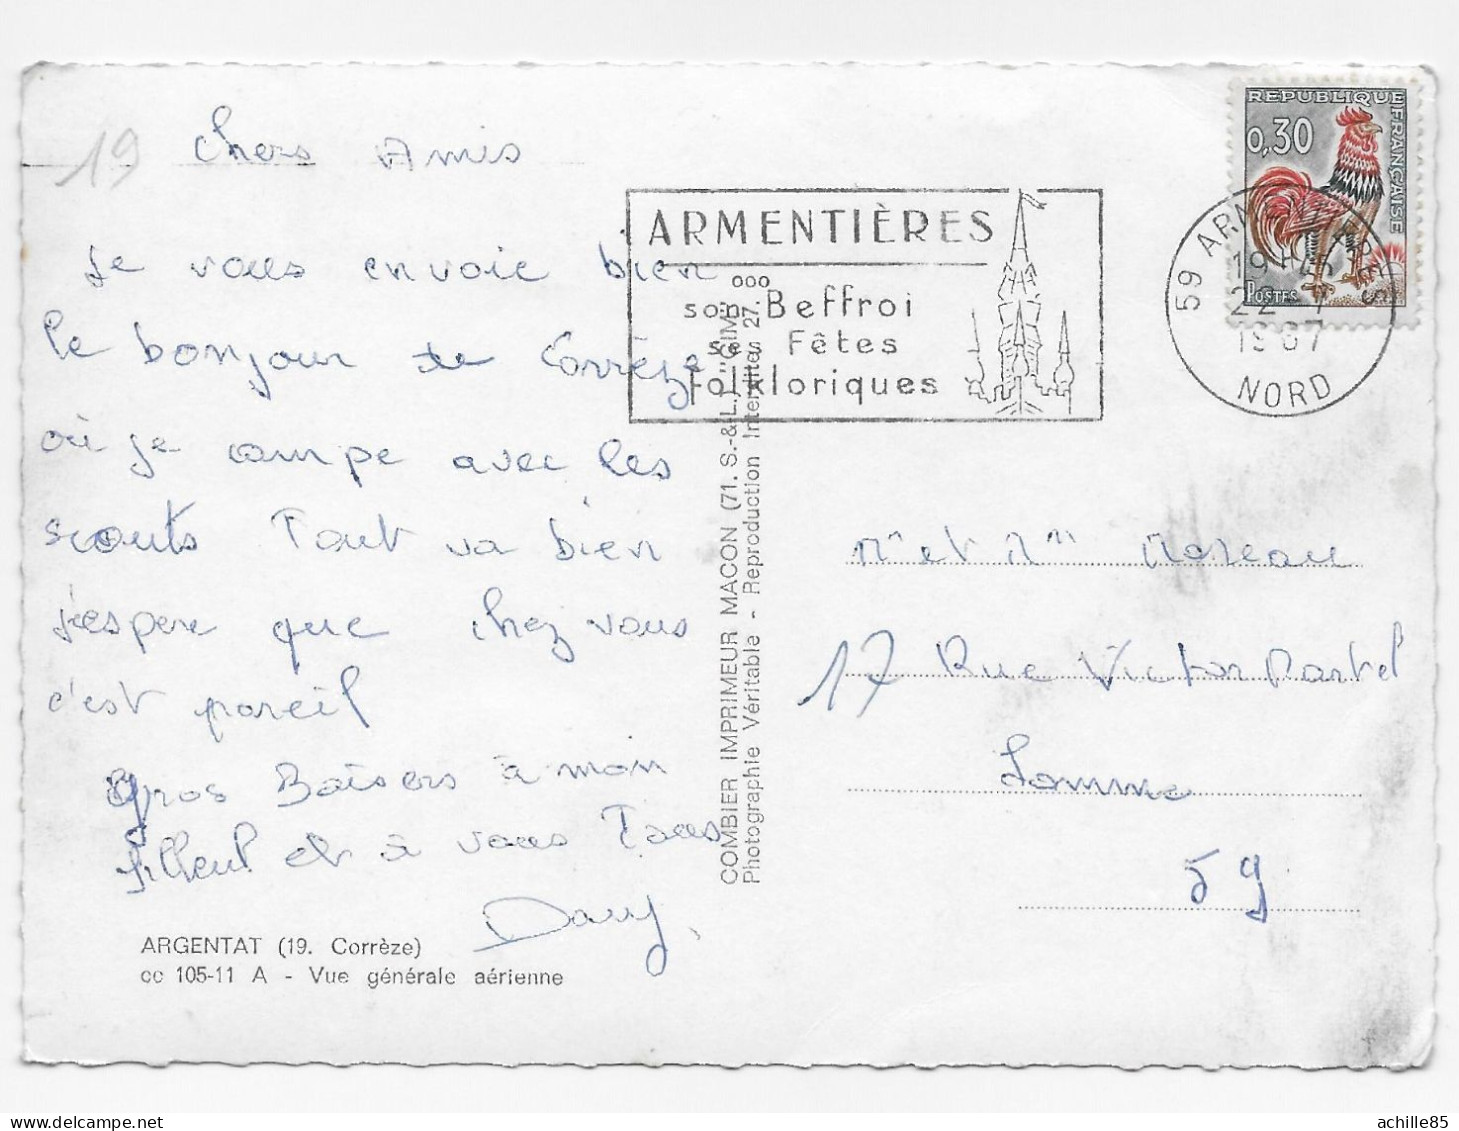 19
Chers Amis
Je vous envoie bien
le bonjour de Corrèze
où je campe avec les
scouts Tout va bien
j'espere que chez vous
c'est pareil
Gros Baisers à mon
filleul et à vous Tous
Dany
ARGENTAT (19. Corrèze)
cc 105-11 A - Vue générale aérienne
COMBIER IMPRIMEUR MACON (71. S.-&-L.) "CIM"
Photographie Véritable - Reproduction Interdite 27.
ARMENTIÈRES
ooo
son Beffroi
ses Fêtes
folkloriques
REPUBLIQUE FRANÇAISE
0,30
POSTES
59 ARMENTIERES
19H
22 - 7
1967
NORD
Mr et Mme Moreau
17 Rue Victor Martel
Lomme
59
achille85